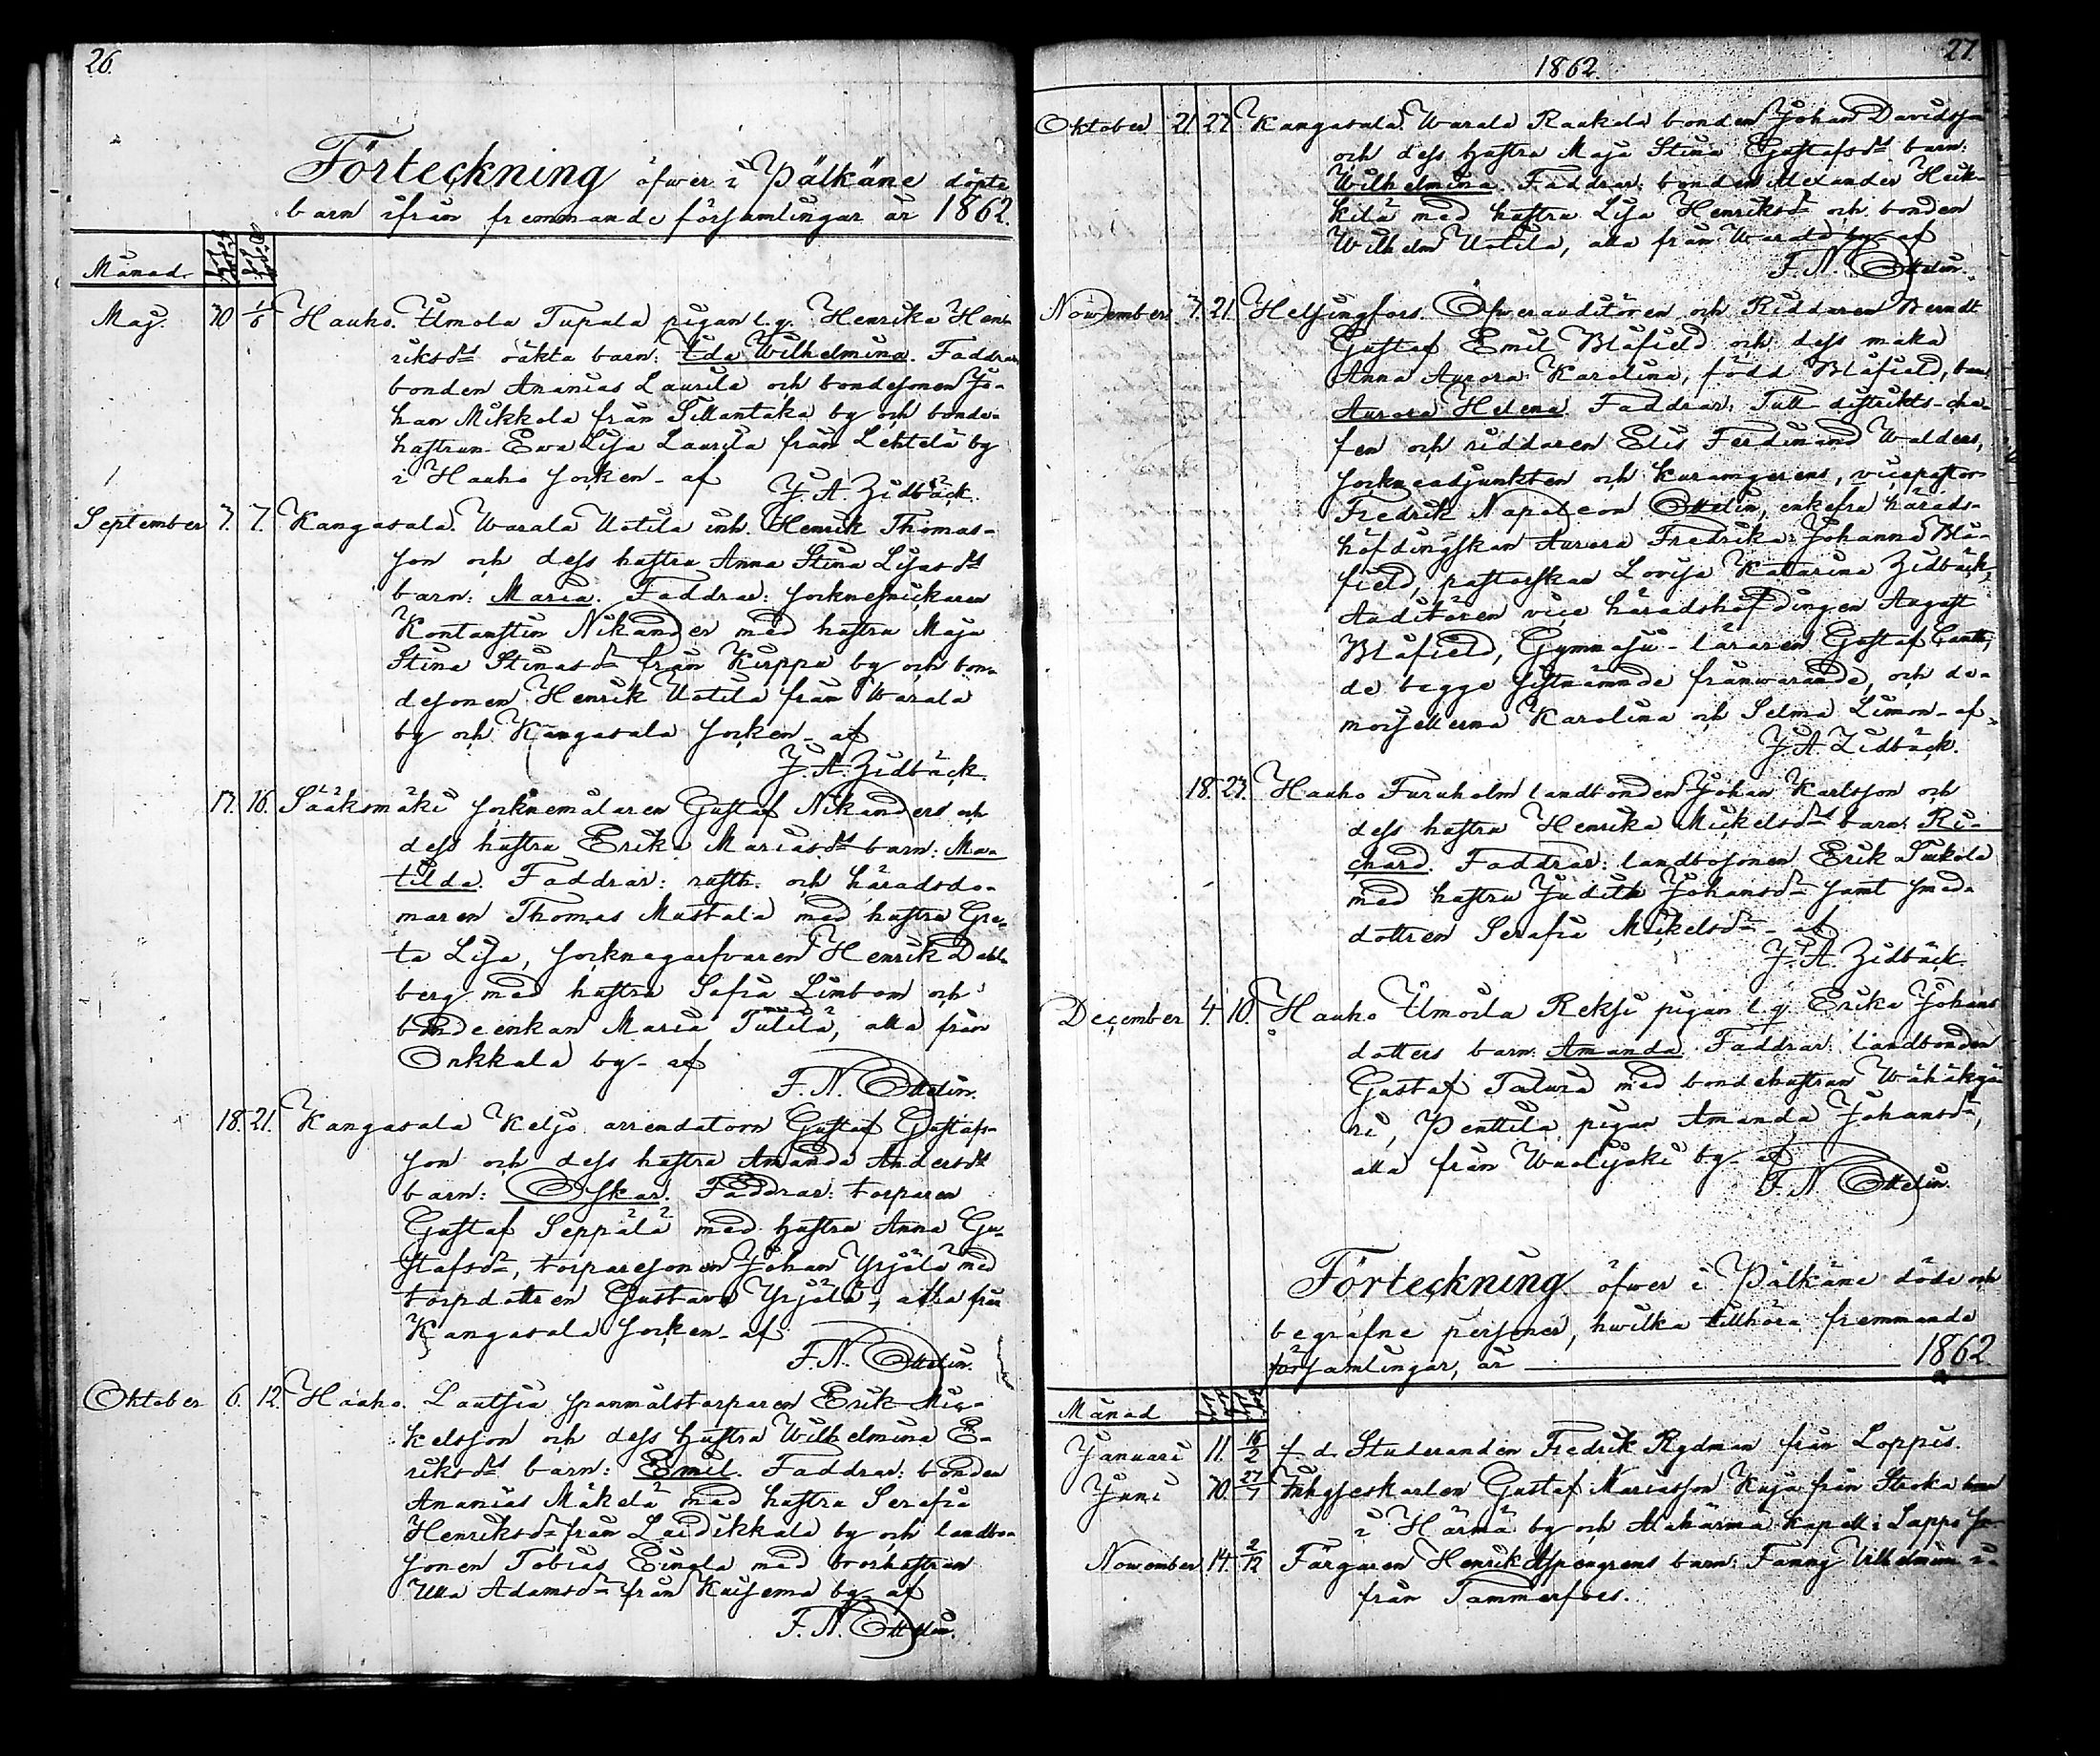 26.
Förteckning öfwer i Pälkäne döpte
barn ifrån fremmande församlingar år 1862.
Månad.
Maj. 30 1/6 Hauho. Ilmola Tupala pigan l. g. Henrika Hen-
riksdrs oäkta barn: Ida Wilhelmina. Faddrar
bonden Ananias Laurila och bondesonen Jo-
han Mikkola från Sillantaka by och bonde-
hustrun Ewa Lisa Laurila från Lehtelä by
i Hauho socken - af
J. A. Zidbäck.
September 7. 7. Kangasala. Warala Uotila inh. Henrik Thomas-
son och dess hustru Anna Stina Lisasdrs
barn: Maria. Faddrar: socknesnickaren
Kontanstin Nikander med hustru Maja
Stina Stinasdr från Kirppu by och bon-
desonen Henrik Uotila från Warala
by och Kangasala socken - af
J. A. Zidbäck.
17. 16. Sääksmäki socknemålaren Gustaf Nikanders och
dess hustru Erika Mariasdrs barn: Ma-
tilda. Faddrar: rusth. och häradsdo-
maren Thomas Mastala med hustru Gre-
ta Lisa, socknegarfvaren Henrik Dahl-
berg med hustru Sofia Limbom och
bondeenkan Maria Tulila, alla från
Onkkala by - af
F. N. Ottelin.
18. 21. Kangasala Keljo arrendatorn Gustaf Gustafs-
son och dess hustru Amanda Andersdrs
barn: Oskar. Faddrar: torparen
Gustaf Seppälä med hustru Anna Gu-
stafsdr, torparesonen Johan Yrjälä med
torpdottren Gustava Yrjälä, alla från
Kangasala socken - af
F. N. Ottelin.
Oktober 6. 12. Hauho. Lautsia spanmålstorparen Erik Mic-
kelsson och dess hustru Wilhelmina E-
riksdrs barn: Emil. Faddrar: bonden
Ananias Mäkelä med hustru Serafia
Henriksdr från Laidikkala by och landbo-
sonen Tobias Einola med brorhustrun
Ulla Adamsdr från Kaisema by af
F. N. Ottelin.
27.
1862.
Oktober 21 27. Kangasala. Warala Raakala bonden Johan Davidsson
och dess hustru Maja Stina Gustafsdrs barn:
Wilhelmina. Faddrar: bonden Alexander Heik-
kilä med hustru Lisa Henriksdr och bonden
Wilhelm Uotila, alla från Warala by af
F. N. Ottelin.
November 7. 21. Helsingfors. Öfwerauditören och Riddaren Berndt
Gustaf Emil Blåfield och dess maka
Anna Aurora Karolina, född Blåfield, barn
Aurora Helena. Faddrar: Tull-distrikts-che-
fen och riddaren Elis Ferdinand Walders,
sockneadjunkten och vicepastorn
Fredrik Napoleon Ottelin, enkefru härads-
höfdingskan Aurora Fredrika Johanna Blå-
field, pastorskan Lovisa Katarina Zidbäck,
Auditören vice häradshöfdingen August
Blåfield, Gymnasii-läraren Gustaf
de begge sistnämnde frånwarande, och de-
moisellerna Karolina och Selma Limon - af
J. A. Zidbäck.
18. 23. Hauho Furuholm landbonden Johan Karlsson och
dess hustru Henrika Mickelsdrs barn: Ri-
chard. Faddrar: landbosonen Erik Tuckola
med hustru Judith Johansdr samt smed-
dottren Serafia Mickelsdr - af
J. A. Zidbäck.
December 4. 10. Hauho Ilmoila Reksi pigan l. g. Erika Johans
dotters barn: Amanda. Faddrar: landbonden
Gustaf Talura med bondehustrun Wähäkyn-
ri, Penttilä pigan Amanda Johansdr,
alla från Waolijoki by af
F. N. Ottelin.
Förteckning öfwer i Pälkäne döde och
begrafne personer, hwilka tillhöra fremmande
församlingar, år 1862
Månad
Januari 11. 16/2 f. d. Studeranden Fredrik Rydman från Loppis.
Juni 30. 27/7 Inhyseskarlen Gustaf Mariasson Kuja från Stroka
i Härmä by och Alahärmä kapell i Lappo
November 14. 2/12 Färgaren Henrik Aspengrens barn: Fanny Wilhelmina
från Tammerfors.